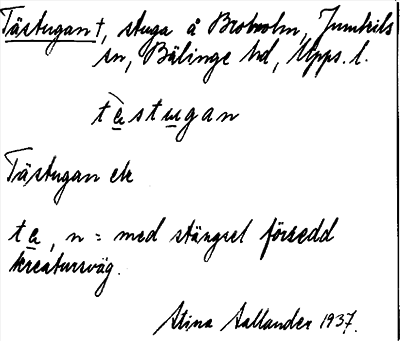 Tästugan †, stuga å Broholm, Jumkils
sn, Bälinge hd, Upps. l.
tästugan
Tästugan etc
tä, n = med stängsel försedd
kreatursväg.
Stina Aallander 1937.